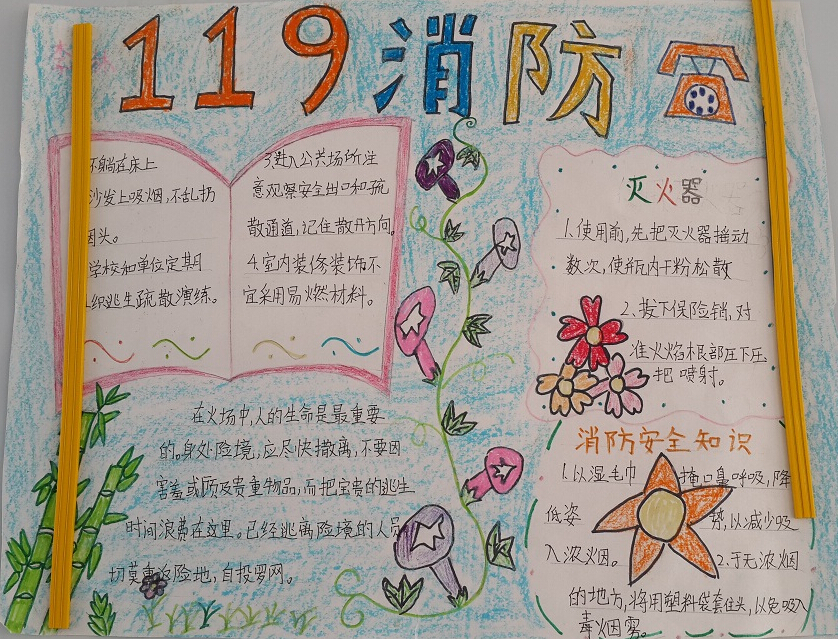 119消防
不躺在床上
沙发上吸烟,不乱扔
因头。
学校和单位定期
织逃生疏散演练。
3进入公共场所注
意观察安全出口和疏
散通道,记住散开方向。
4.室内装修装饰不
宜采用易燃材料。
在火场中,人的生命是最重要
的。身处险境,应尽快撤离,不要因
害羞或顾及贵重物品,而把宝贵的逃生
时间浪费在这里。已经逃离险境的人员
切莫重返险地,自投罗网。
灭火器
1.使用前,先把灭火器摇动
数次,使瓶内干粉松散
2.拔下保险销,对
准火焰根部压下压
把 喷射。
消防安全知识
1.以湿毛巾 掩口鼻呼吸,降
低姿 势,以减少吸
入浓烟。 2.于无浓烟
的地方,将用塑料袋套住头,以免吸入
毒烟雾。